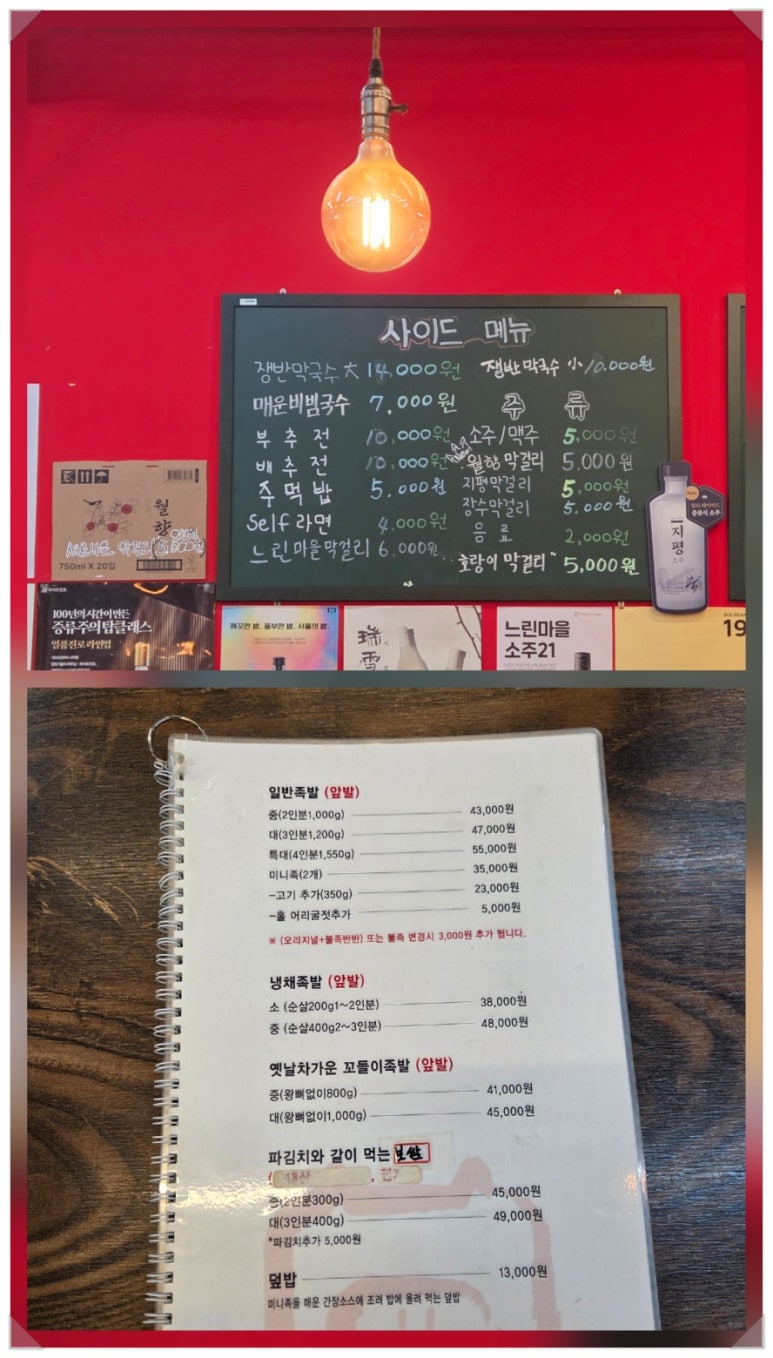 사이드 메뉴
쟁반막국수 大 14,000원 쟁반막국수 小 10,000원
매운비빔국수 7,000원 주 류
부추전 10,000원 소주/맥주 5,000원
배추전 10,000원 New 월향 막걸리 5,000원
주먹밥 5,000원 지평막걸리 5,000원
Self 라면 4,000원 장수막걸리 5,000원
느린마을막걸리 6,000원 음료 2,000원
호랑이 막걸리 5,000원
월향
막걸리
750ml X 20입
지평
소주
100년의 시간이 만든
증류주의 탑클래스
일품진로 라인업
깨끗한 밤. 풀부한 밤. 서울의 밤.
瑞雪
느린마을
소주21
19
일반족발 (앞발)
중(2인분1,000g) 43,000원
대(3인분1,200g) 47,000원
특대(4인분1,550g) 55,000원
미니족(2개) 35,000원
-고기 추가(350g) 23,000원
-홀 어리굴젓추가 5,000원
※ (오리지널+불족반반) 또는 불족 변경시 3,000원 추가 됩니다.
냉채족발 (앞발)
소 (순살200g1~2인분) 38,000원
중 (순살400g2~3인분) 48,000원
옛날차가운 꼬들이족발 (앞발)
중(왕뼈없이800g) 41,000원
대(왕뼈없이1,000g) 45,000원
파김치와 같이 먹는 보쌈
중(2인분300g) 45,000원
대(3인분400g) 49,000원
*파김치추가 5,000원
덮밥 13,000원
미니족을 매운 간장소스에 조려 밥에 올려 먹는 덮밥